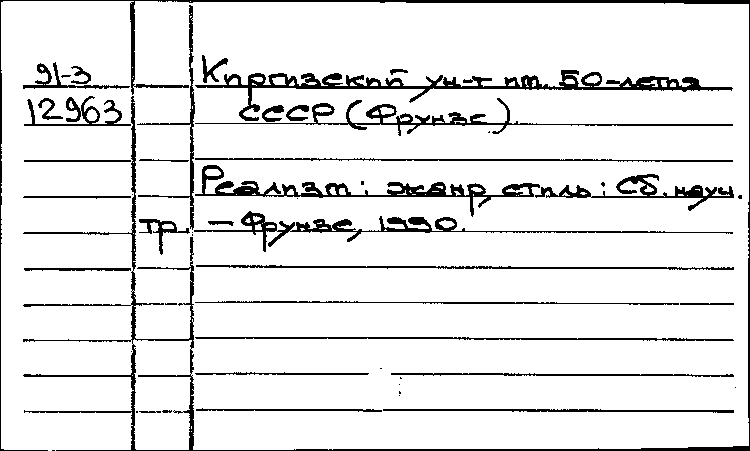 91-3 Киргизский ун-т им. 50-летия
12963 СССР (Фрунзе).
Реализм: жанр, стиль: Сб. науч.
тр. - Фрунзе, 1990.